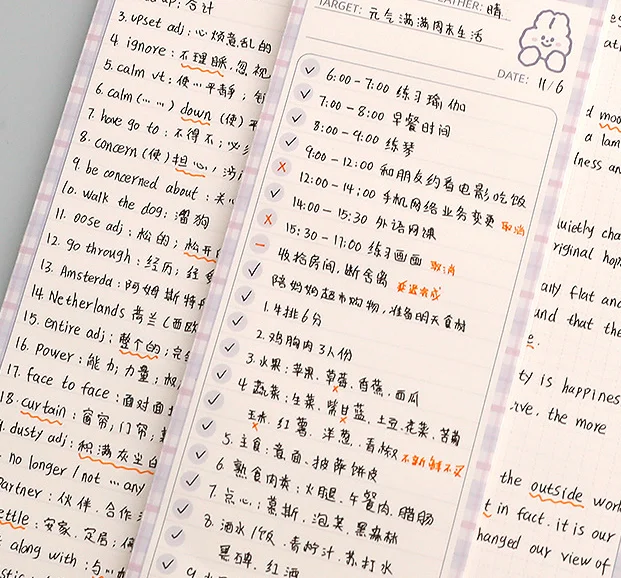 up: 合计
3. upset adj: 心烦意乱的
4. ignore: 不理睬. 忽视
5. calm vt: 使…平静;
6. calm (… …) down (使) 平
7. have go to: 不得不;
8. concern (使) 担心,
9. be concerned about: 关
10. walk the dog: 遛狗
11. oose adj: 松的; 松开
12. go through: 经历;
13. Amsterda: 阿姆斯特
14. Netherlands 荷兰 (西欧
15. entire adj: 整个的; 完
16. power: 能力; 力量;
17. face to face: 面对面
18. curtain: 窗帘; 门帘;
dusty adj: 积满灰尘的
no longer / not ... any
partner: 伙伴. 合作
ettle: 安家. 定居;
along with: 与
TARGET: 元气满满周末生活
WEATHER: 晴
DATE: 11/6
6:00-7:00 练习瑜伽
7:00-8:00 早餐时间
8:00-9:00 练琴
9:00-12:00 和朋友约看电影吃饭
12:00-14:00 手机网络业务变更 取消
14:00-15:30 外语网课
15:30-17:00 练习画画 取消
收拾房间, 断舍离 延迟完成
陪妈妈超市购物, 准备明天食材
1. 牛排6分
2. 鸡胸肉3人份
3. 水果: 苹果. 草莓. 香蕉. 西瓜
4. 蔬菜: 生菜. 紫甘蓝. 土豆. 花菜. 苦菊
玉米. 红薯. 洋葱. 青椒 不新鲜不买
5. 主食: 意面. 披萨饼皮
6. 熟食肉类: 火腿. 午餐肉. 腊肠
7. 点心: 慕斯. 泡芙. 黑森林
8. 酒水/饮. 青柠汁. 苏打水
黑啤. 红酒
d moo
a lam
lness an
uietly cha
riginal hop
any flat and
und that the
e.
ty is happines
rve. the more
the outside wor
t in fact. it is our
hanged our view of